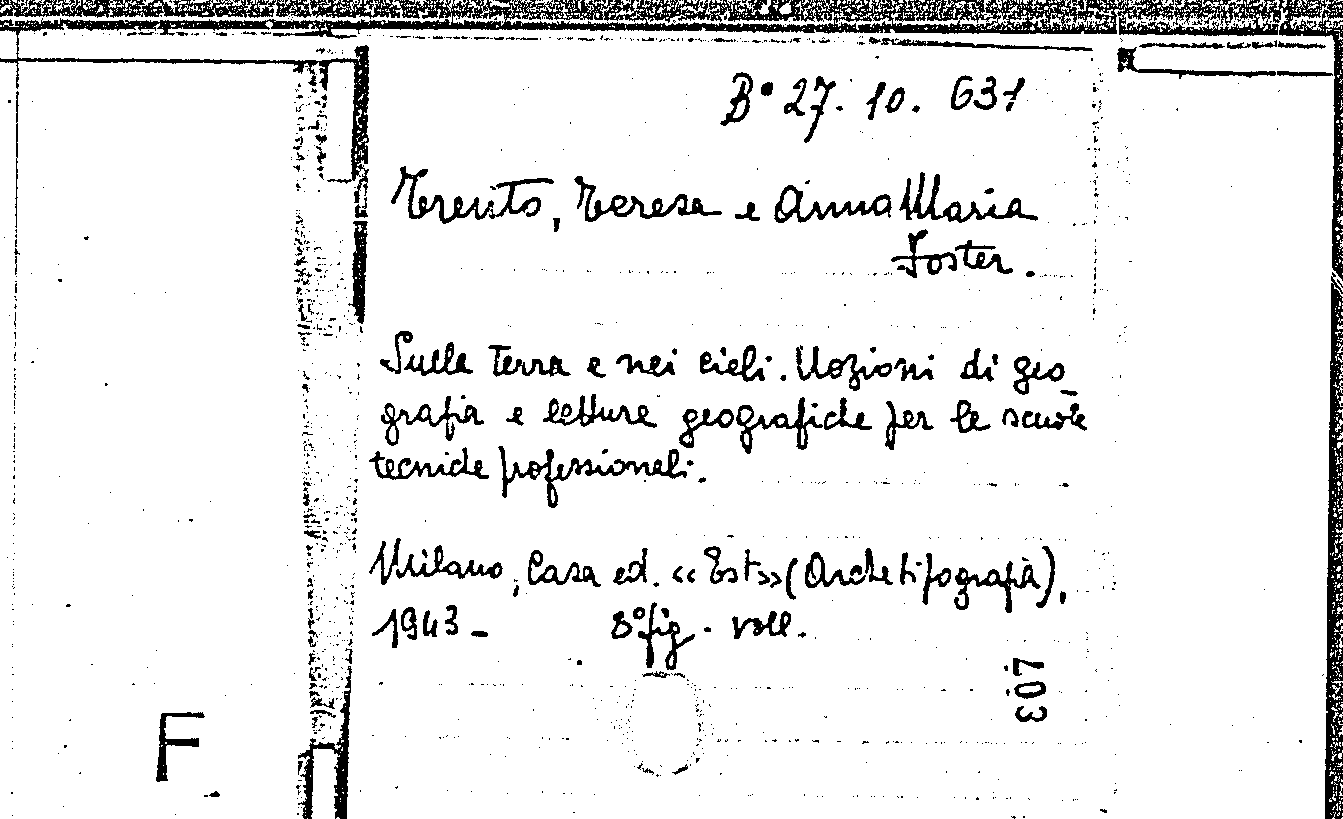 B° 27. 10. 631
Trento, Teresa e Anna Maria
Foster.
Sulla terra e nei cieli. Nozioni di geo-
grafia e letture geografiche per le scuole
tecniche professionali.
Milano, Casa ed. «Est» (Archetipografia),
1943 - 8° fig. voll.
307
F